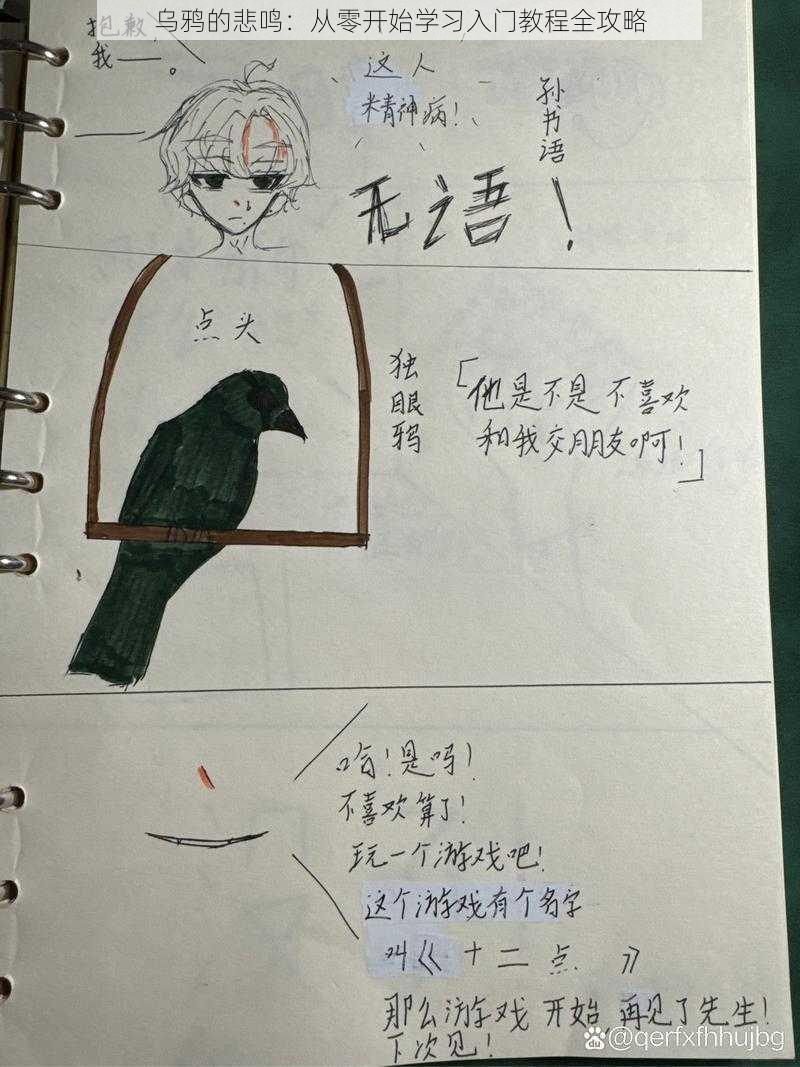 乌鸦的悲鸣：从零开始学习入门教程全攻略
抱歉，
我——。
这人
精神病！
孙书语
无语！
点头
独眼鸦
「他是不是不喜欢
和我交朋友啊！」
哈！是吗！
不喜欢算了！
玩一个游戏吧！
这个游戏有个名字
叫《十二点》
那么游戏开始，再见了先生！
下次见！
Baidu @qerfxfhhujbg